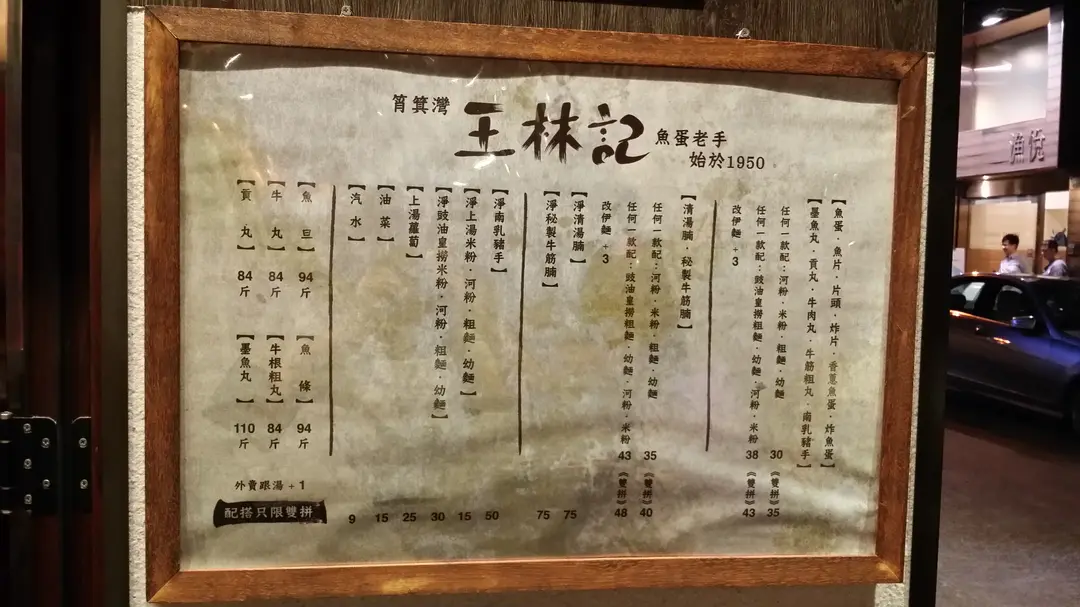 筲箕灣
王林記
魚蛋老手
始於1950
【魚蛋．魚片．片頭．炸片．香蔥魚蛋．炸魚蛋】
【墨魚丸．貢丸．牛肉丸．牛筋粗丸．南乳豬手】
任何一款配：河粉．米粉．粗麵．幼麵 30 《雙拼》35
任何一款配：豉油皇撈粗麵．幼麵．河粉．米粉 38 《雙拼》43
改伊麵 +3
【清湯腩．秘製牛筋腩】
任何一款配：河粉．米粉．粗麵．幼麵 35 《雙拼》40
任何一款配：豉油皇撈粗麵．幼麵．河粉．米粉 43 《雙拼》48
改伊麵 +3
【淨清湯腩】 75
【淨秘製牛筋腩】 75
【淨南乳豬手】 50
【淨上湯米粉．河粉．粗麵．幼麵】 15
【淨豉油皇撈米粉．河粉．粗麵．幼麵】 30
【上湯蘿蔔】 25
【油菜】 15
【汽水】 9
【魚旦】 94斤
【魚條】 94斤
【牛丸】 84斤
【牛根粗丸】 84斤
【貢丸】 84斤
【墨魚丸】 110斤
外賣跟湯 +1
配搭只限雙拼
漁悅